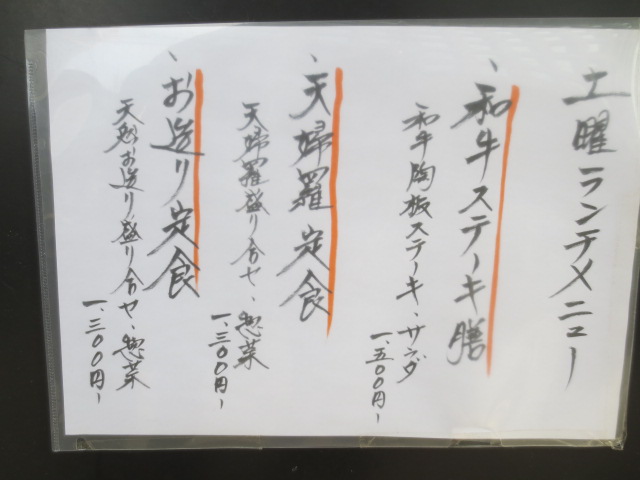 土曜ランチメニュー
、和牛ステーキ膳
和牛陶板ステーキ、サラダ
一、五〇〇円〜
、天婦羅定食
天婦羅盛り合せ、惣菜
一、三〇〇円〜
、お造り定食
天然お造り盛り合せ、惣菜
一、三〇〇円〜